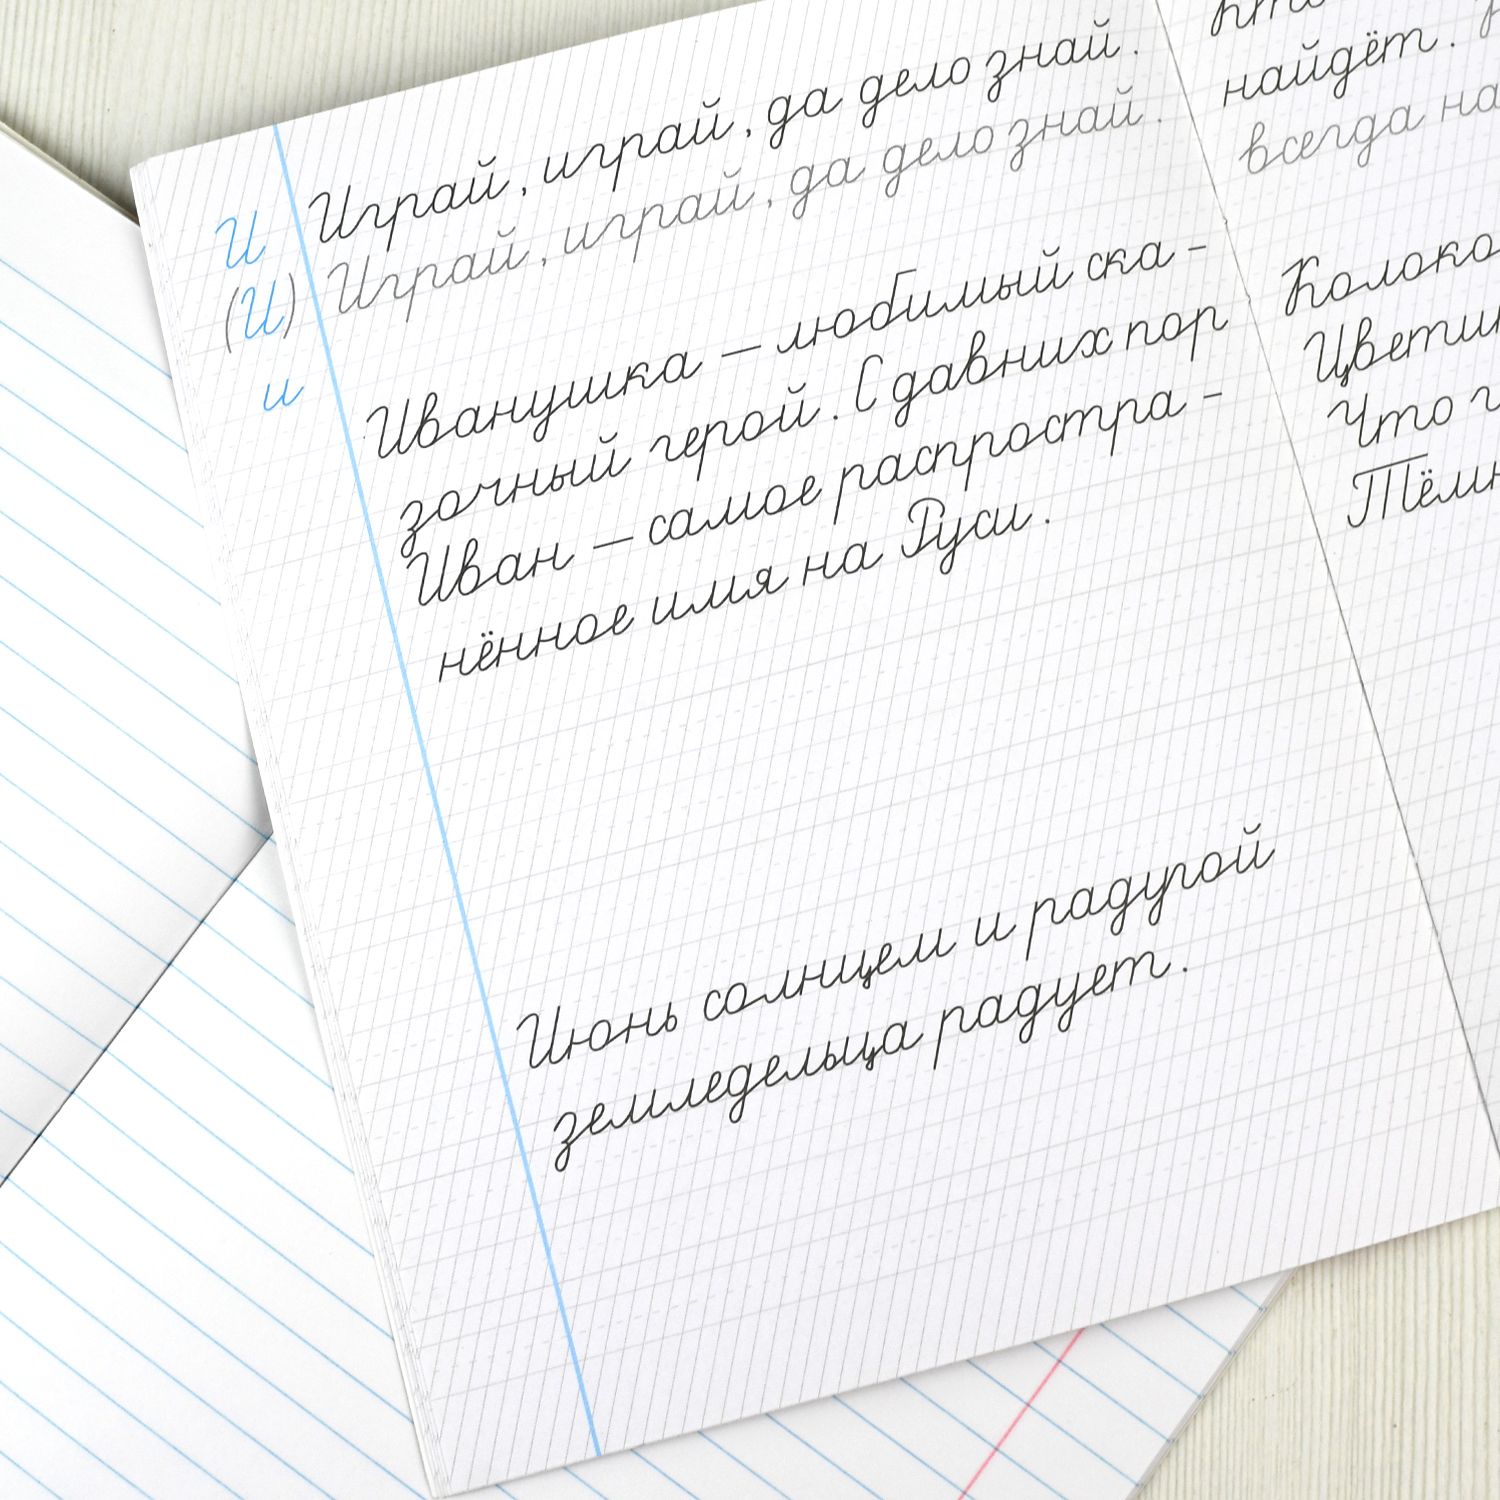 И Играй, играй, да дело знай.
(И) Играй, играй, да дело знай.
и
Иванушка – любимый ска-
зочный герой. С давних пор
Иван – самое распростра-
нённое имя на Руси.
Июнь солнцем и радугой
земледельца радует.
найдёт.
всегда
Что